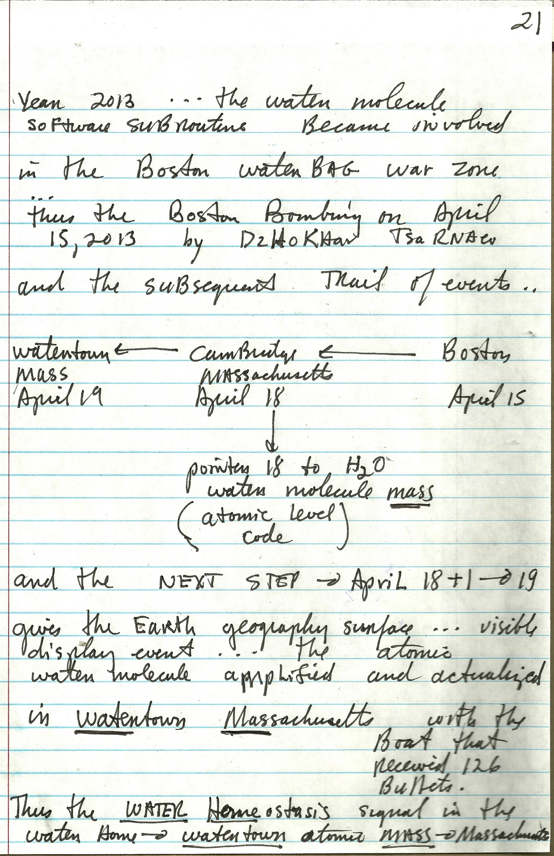 21
Year 2013 ... the water molecule
software subroutine Became involved
in the Boston waterBAG war zone
...
thus the Boston Bombing on April
15, 2013 by DzHoKHar TsaRNAev
and the suBsequent Trail of events ..
watertown ← CamBridge ← Boston
mass MAssachusetts
April 19 April 18 April 15
↓
pointer 18 to H₂O
water molecule mass
(atomic level
code)
and the NEXT STEP → ApriL 18+1 → 19
gives the Earth geography surface ... visible
display event .... the atomic
water molecule amplified and actualized
in watertown Massachusetts with the
Boat that
received 126
Bullets.
Thus the WATER Homeostasis signal in the
water Home → watertown atomic MASS → Massachusetts